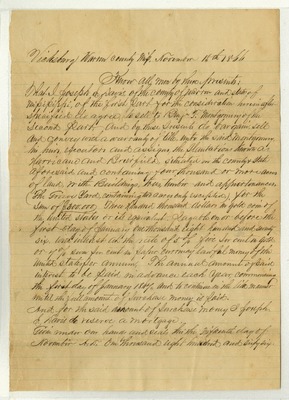 Vicksburg Warren County Miss. November 15th 1866
Know all men by these presents
That I Joseph E Davis of the County of Warren and State of
Mississippi of the first part for the consideration hereinafter
specified do agree to sell to Benj. T. Montgomery of the
Second Part. And by these presents do bargain sell
and convey with a warranty of title unto the said Montgomery
his executors and assigns the Plantations known as
Hurricane and Brierfield Situated in the County & State
aforesaid and containing four thousand or more acres
of land, with the Buildings and appurtenances
(The Grave Yard containing excepted) for the
sum of three hundred thousand dollars in gold coin of
the United States or its equivalent payable on or before the
first day of January One thousand Eight hundred and seventy
six with interest at the rate of 5% per annum in gold
or 7% per annum in paper currency lawful money of the
United States America. The annual amount of said
interest to be paid in advance each year, commencing
the first day of January 1867 and to continue in like manner
until the full amount of purchase money is paid.
And for the said amount of purchase money I Joseph
E Davis do reserve a mortgage.
Given under our hands and seals this the fifteenth day of
November A.D. One thousand eight hundred and sixty six